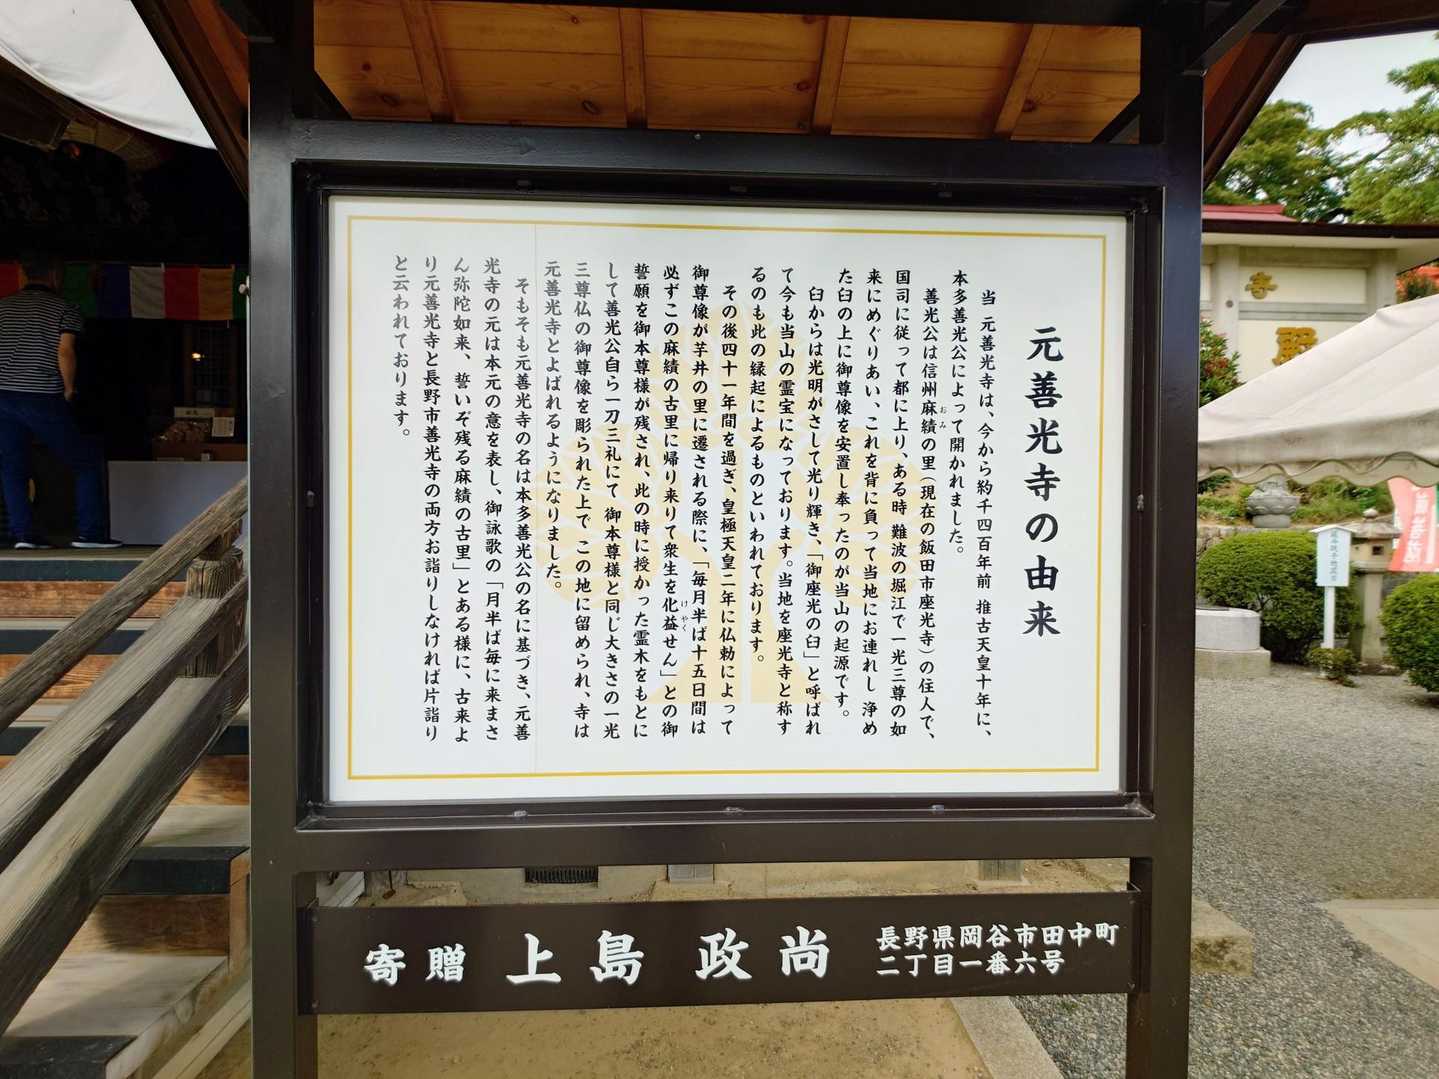 元善光寺の由来
当 元善光寺は、今から約千四百年前 推古天皇十年に、
本多善光公によって開かれました。
善光公は信州麻績の里（現在の飯田市座光寺）の住人で、
おみ
国司に従って都に上り、ある時 難波の堀江で一光三尊の如
来にめぐりあい、これを背に負って当地にお連れし 浄め
た臼の上に御尊像を安置し奉ったのが当山の起源です。
臼からは光明がさして光り輝き、「御座光の臼」と呼ばれ
て今も当山の霊宝になっております。当地を座光寺と称す
るのも此の縁起によるものといわれております。
その後四十一年間を過ぎ、皇極天皇二年に仏勅によって
御尊像が芋井の里に遷される際に、「毎月半ば十五日間は
必ずこの麻績の古里に帰り来りて衆生を化益せん」との御
けやく
誓願を御本尊様が残され、此の時に授かった霊木をもとに
して善光公自ら一刀三礼にて 御本尊様と同じ大きさの一光
三尊仏の御尊像を彫られた上で この地に留められ、寺は
元善光寺とよばれるようになりました。
そもそも元善光寺の名は本多善光公の名に基づき、元善
光寺の元は本元の意を表し、御詠歌の「月半ば毎に来まさ
ん弥陀如来、誓いぞ残る麻績の古里」とある様に、古来よ
り元善光寺と長野市善光寺の両方お詣りしなければ片詣り
と云われております。
寄贈 上島 政尚
長野県岡谷市田中町
二丁目一番六号
寺
殿